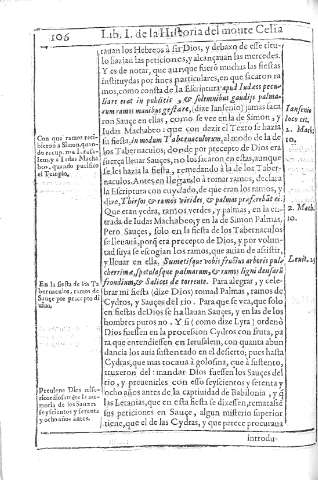 106
Lib. I. de la Historia del monte Celia
tauan los Hebreos à sir Dios, y debaxo de este titu-
lo hazian las peticiones, y alcançauan las mercedes.
Y es de notar, que aunque fuerõ muchas las fiestas
instituydas por fines particulares, en que sacaron ra
mos, como consta de la Escriptura apud Iudæos pecu-
liare erat in publicis, & solemnibus gaudijs palma-
rum ramos manibus gestare, (dize Iansenio) jamas sacarõ
Sauçe en ellas, como se vee en la de Simon, y
Iudas Machabeo: que con dezir el Texto se hazia
la fiesta, in modum Tabernaculorum, al modo de la de
los Tabernaculos; donde por precepto de Dios era
fuerça lleuar Sauçes, no los sacaron en ellas, aunque
se les hazia la fiesta, remedando à la de los Taber-
naculos. Antes en llegando à tomar ramos, declara
la Escriptura con cuydado, de que eran los ramos, y
dize, Thyrsos & ramos virides, & palmas præferebãt ei.
Que eran yedra, ramos verdes, y palmas, en la en-
trada de Iudas Machabeo, y en la de Simon Palmas.
Pero Sauçes, solo en la fiesta de los Tabernaculos
se lleuauã, porq̃ era precepto de Dios, y por volun-
tad suya se escogian los ramos, que auian de assistir,
y lleuar en ella. Sumetisque vobis fructus arboris pul-
cherrimæ, spatulasque palmarum, & ramos ligni densarũ
frondium, & salices de torrente. Para alegrar, y cele-
brar mi fiesta (dize Dios) tomad Palmas, ramos de
Cydros, y Sauçes del rio. Para que se vea, que solo
en fiestas de Dios se hallauan Sauçes, y en las de los
hombres puros no. Y si (como dize Lyra) ordenò
Dios fuessen en la procession Cydros con fruta, pa
ra que entendiessen en Ierusalem, con quanta abun
dancia los auia sustentado en el desierto; pues hasta
Cydras, que mas tocauan à golosina, que à sustento,
truxeron del: mandar Dios fuessen los Sauçes del
rio, y preuenirles con esso seyscientos y setenta y
ocho años antes de la captiuidad de Babilonia, y q̃
las Letanias, que en esta fiesta se dixessen, rematasse
sus peticiones en Sauçe, algun misterio superior
tiene, que el de las Cydras, y que parece procuraua
introdu-
Con que ramos reci-
bierõ à Simon quan-
do
y à Iudas Macha
beo, quando purificò
el Templo.
En la fiesta de los Ta
bernaculos, ramos de
Sauçe por precepto di
uino.
Preuiene Dios seys-
cientos
moria de los Sauzes
seyscientos y setenta
y ocho años antes.
Iansenio
loco cit.
1. Mach.
10.
2. Mach.
10.
Leuit. 23